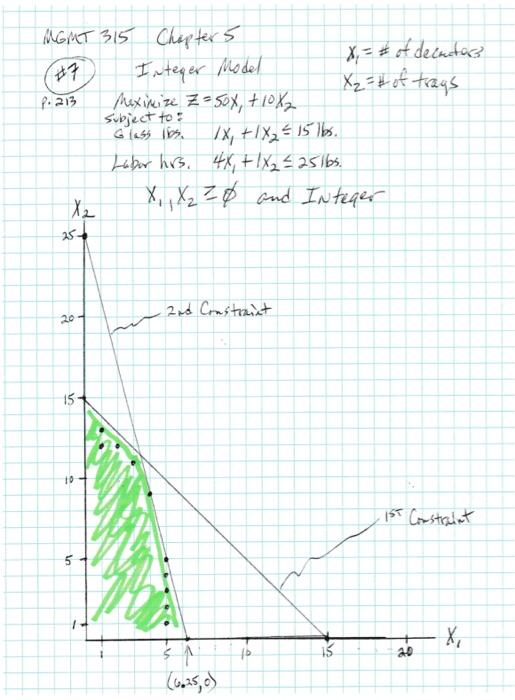 MGMT 315 Chapter 5
#7 Integer Model
p. 213
X₁ = # of decanters
X₂ = # of trays
Maximize Z = 50X₁ + 10X₂
subject to:
Glass lbs. 1X₁ + 1X₂ ≤ 15 lbs.
Labor hrs. 4X₁ + 1X₂ ≤ 25 lbs.
X₁, X₂ ≥ Ø and INteger
X₂
25
2nd Constraint
20
15
10
1ST Constraint
5
1
1 5 10 15 20 X₁
(6.25, 0)